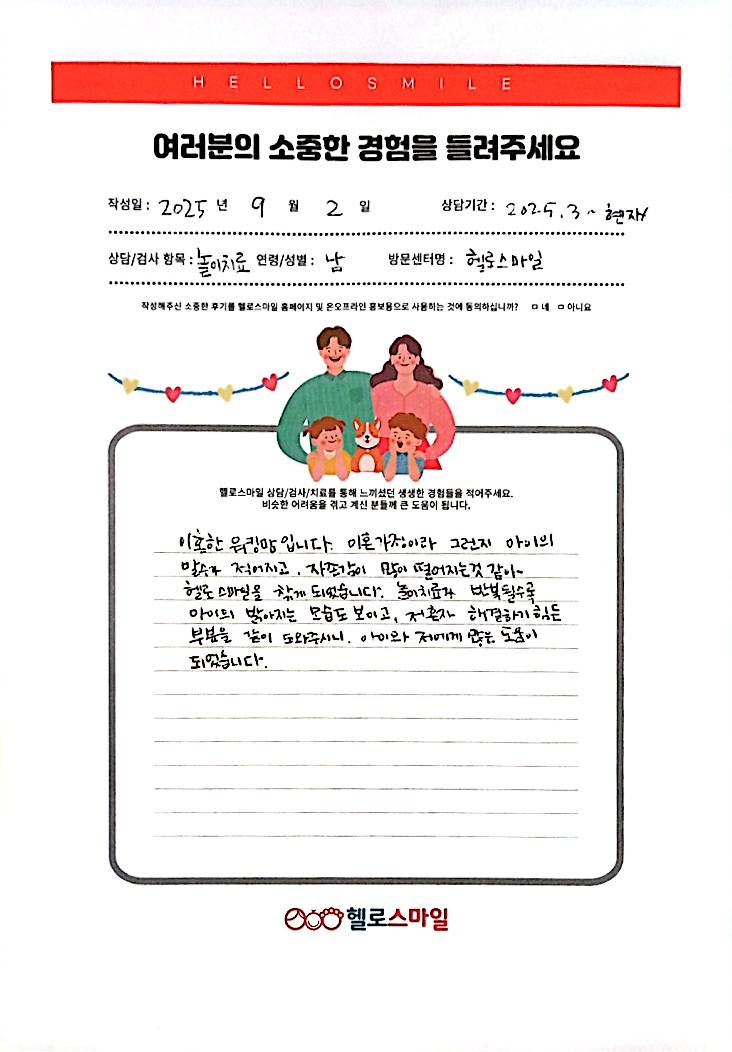 HELLOSMILE
여러분의 소중한 경험을 들려주세요
작성일 : 2025 년 9 월 2 일 상담기간 : 2025.3 ~ 현재
상담/검사 항목 : 놀이치료 연령/성별 : 남 방문센터명 : 헬로스마일
작성해주신 소중한 후기를 헬로스마일 홈페이지 및 온오프라인 홍보용으로 사용하는 것에 동의하십니까? ㅁ 네 ㅁ 아니요
헬로스마일 상담/검사/치료를 통해 느끼셨던 생생한 경험들을 적어주세요.
비슷한 어려움을 겪고 계신 분들께 큰 도움이 됩니다.
이혼한 워킹맘입니다. 이혼가정이라 그런지 아이의
말수가 적어지고, 자존감이 많이 떨어지는것 같아~
헬로 스마일을 찾게 되었습니다. 놀이치료가 반복될수록
아이의 밝아지는 모습도 보이고, 저 혼자 해결하기 힘든
부분을 같이 도와주시니, 아이와 저에게 많은 도움이
되었습니다.
헬로스마일